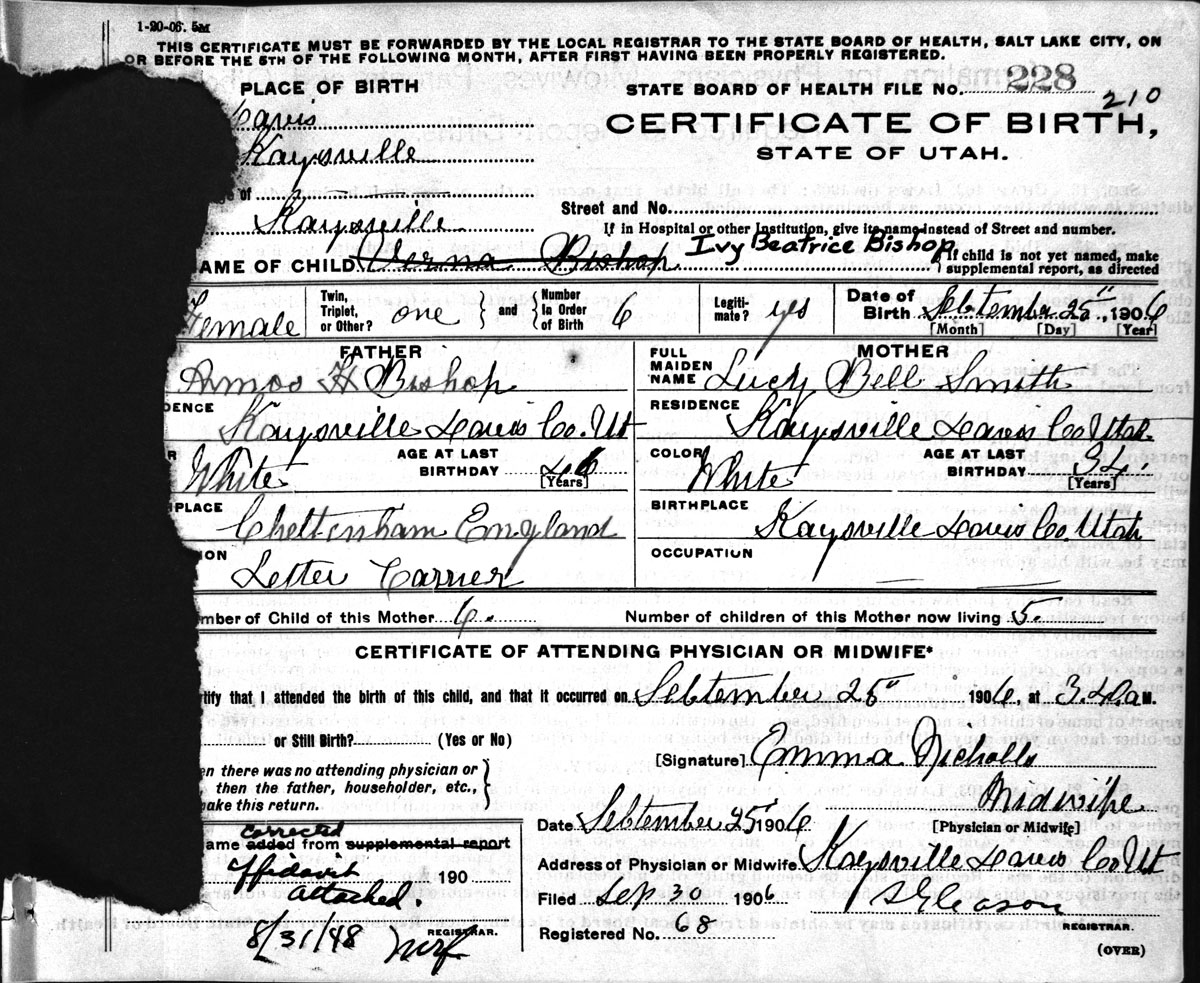 1-20-06. 5M
THIS CERTIFICATE MUST BE FORWARDED BY THE LOCAL REGISTRAR TO THE STATE BOARD OF HEALTH, SALT LAKE CITY, ON
OR BEFORE THE 5TH OF THE FOLLOWING MONTH, AFTER FIRST HAVING BEEN PROPERLY REGISTERED.
PLACE OF BIRTH
STATE BOARD OF HEALTH FILE No. 228
210
Davis
CERTIFICATE OF BIRTH,
Kaysville
STATE OF UTAH.
of
Kaysville
Street and No.
If in Hospital or other Institution, give its name instead of Street and number.
AME OF CHILD Verna Bishop Ivy Beatrice Bishop
If child is not yet named, make
supplemental report, as directed
Female
Twin,
Triplet,
or Other? one
and
Number
in Order
of Birth 6
Legiti-
mate? yes
Date of
Birth September 25", 1906
[Month] [Day] [Year]
FATHER
Amos H Bishop
FULL
MAIDEN
NAME
MOTHER
Lucy Bell Smith
DENCE
Kaysville Davis Co. Ut
RESIDENCE
Kaysville Davis Co Utah
White
AGE AT LAST
BIRTHDAY 46
[Years]
COLOR
White
AGE AT LAST
BIRTHDAY 34.
[Years]
HPLACE
Cheltenham England
BIRTHPLACE
Kaysville Davis Co. Utah
ION
Letter Carrier
OCCUPATION
mber of Child of this Mother 6.
Number of children of this Mother now living 5.
CERTIFICATE OF ATTENDING PHYSICIAN OR MIDWIFE*
rtify that I attended the birth of this child, and that it occurred on September 25" 1906, at 3.40 a M.
or Still Birth? (Yes or No)
[Signature] Emma Nicholls
en there was no attending physician or
then the father, householder, etc.,
make this return.
Midwife
[Physician or Midwife]
Date September 25" 1906
corrected
ame added from supplemental report
Affidavit 190
attached.
Address of Physician or Midwife Kaysville Davis Co Ut
Filed Sep 30 1906
Gleason
8/31/48
REGISTRAR.
Registered No. 68
REGISTRAR.
(OVER)